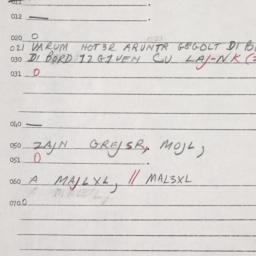 012 —
020 0
021 WARUM HOT3R ARUNTR GEGOLT DI B
030 DI BORD IZ GIVEN CU LAJ-NK (
031 0
040 —
050 ZAJN GREJSR, MOJL,
051 0
060 A MAJLXL, // MAL3XL
070 0